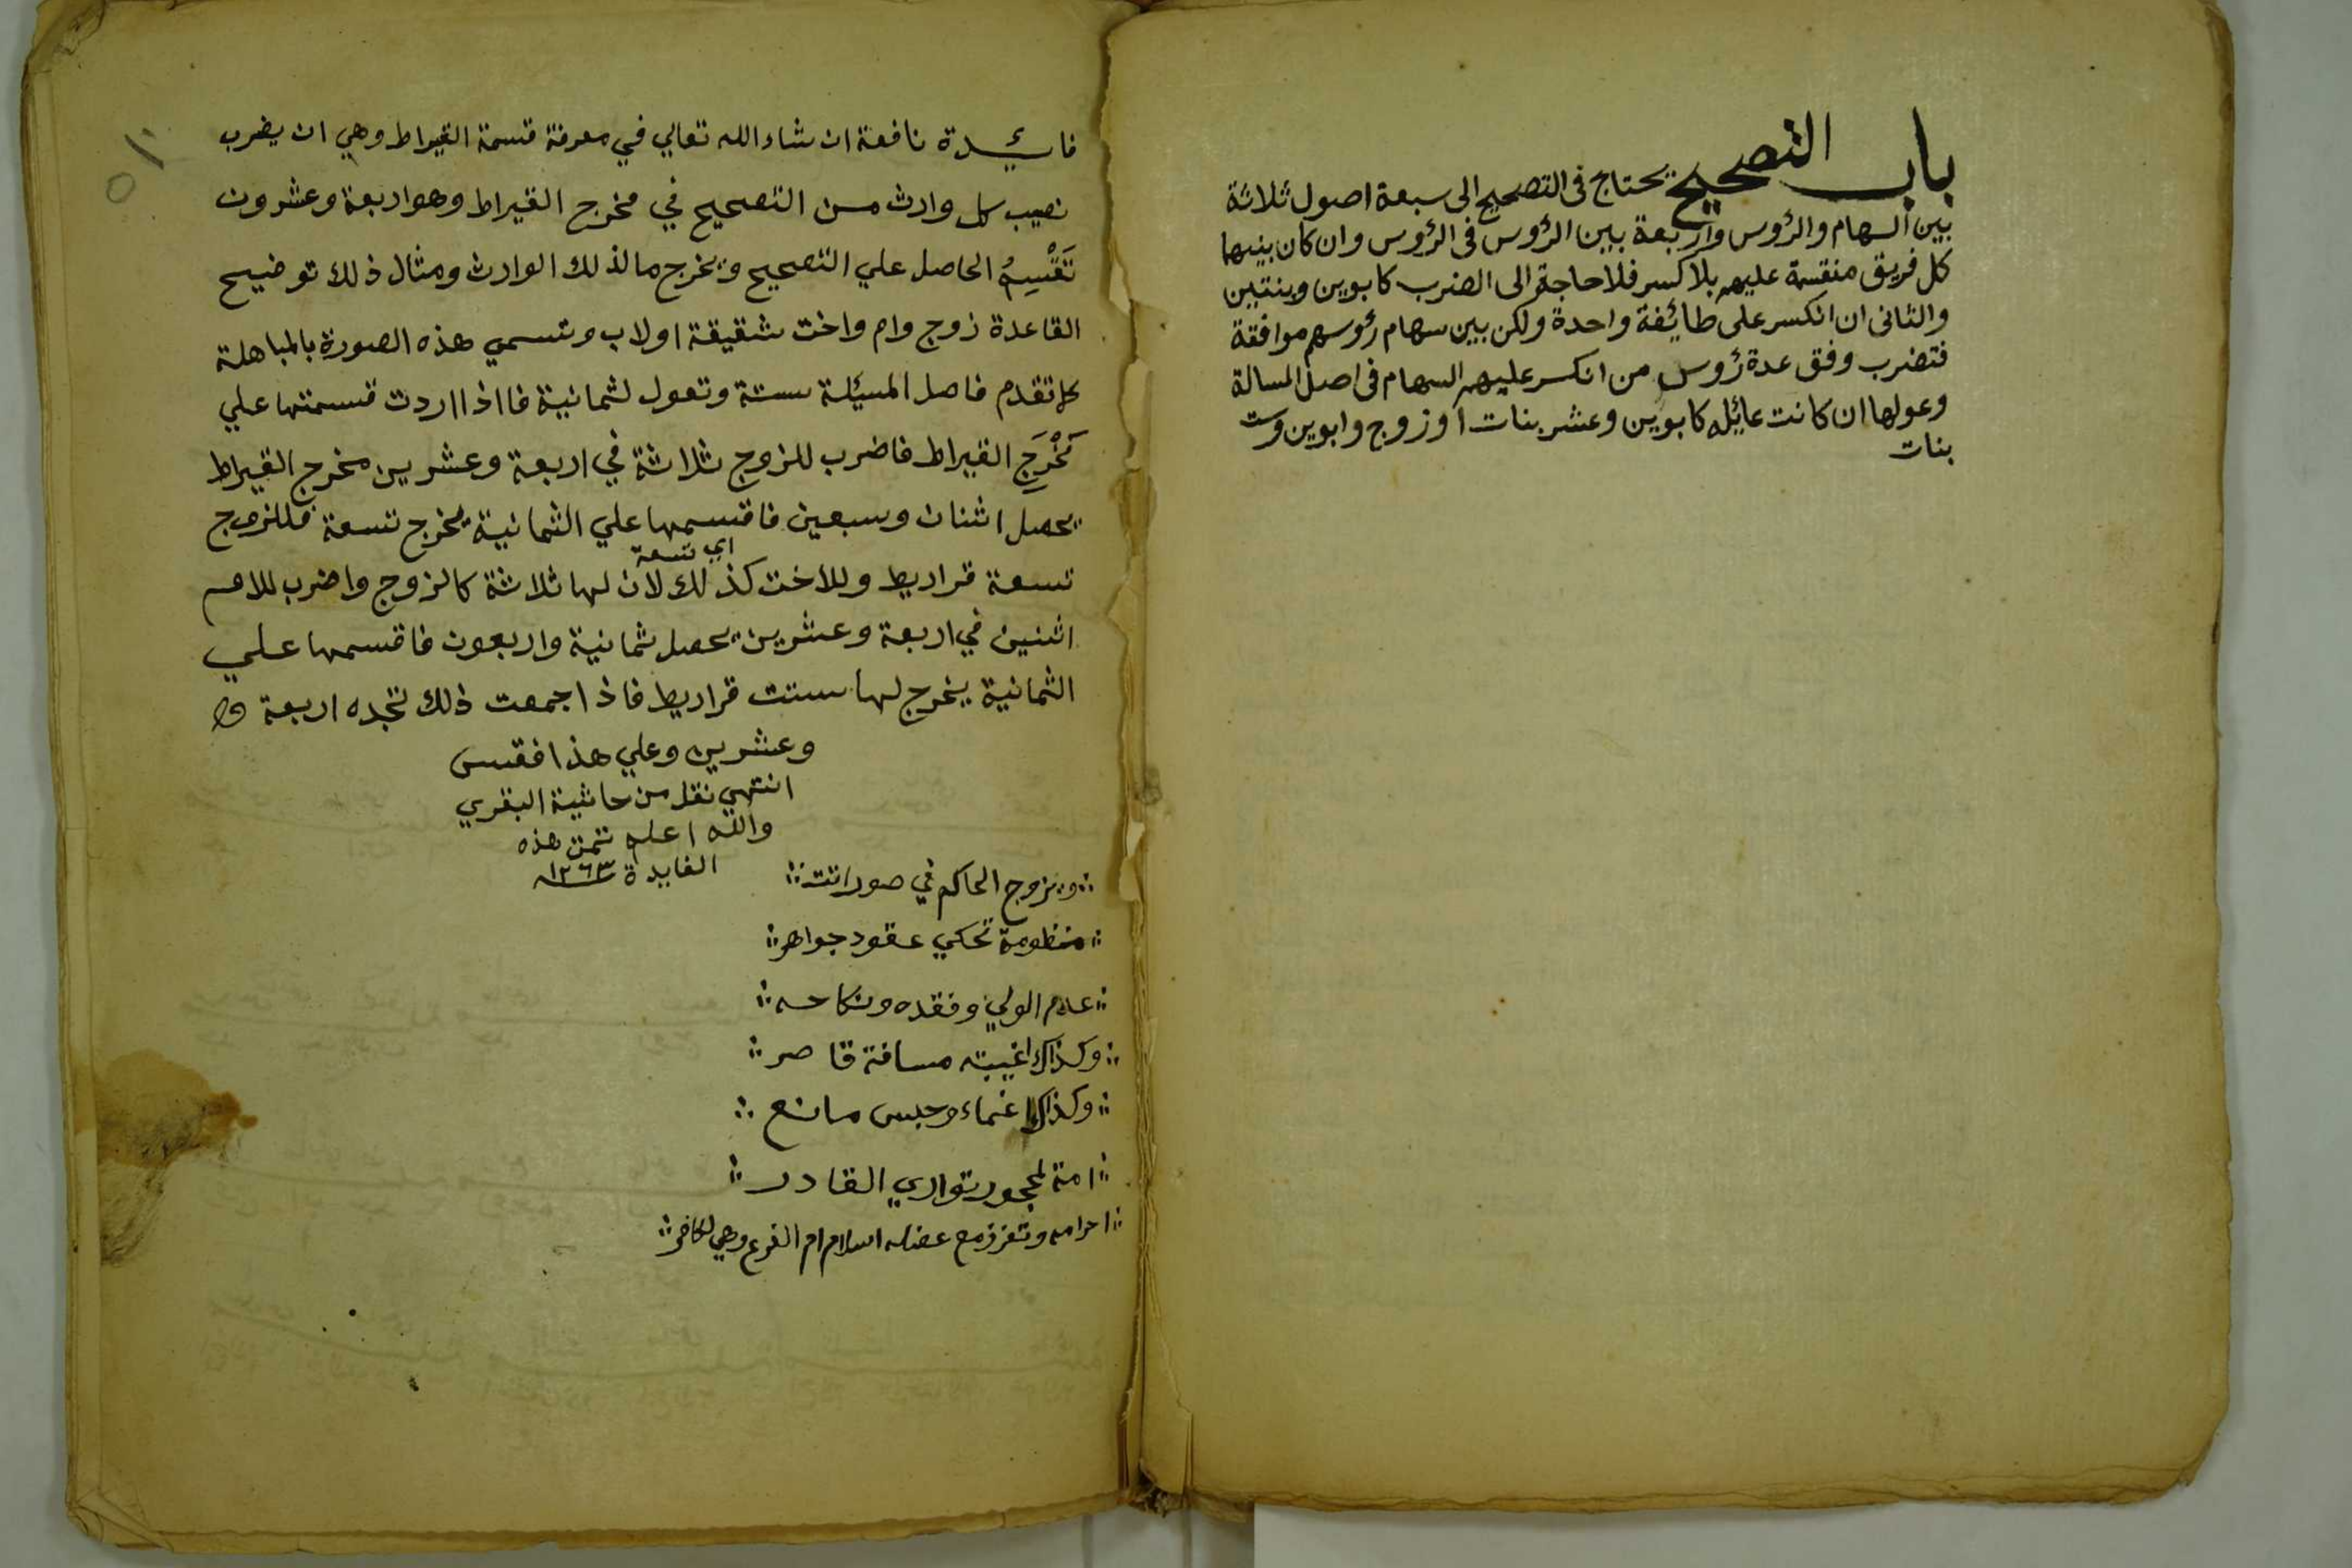 باب التصحيح يحتاج فى التصحيح الى سبعة اصول ثلاثة
بين السهام والرؤس واربعة بين الرؤس فى الرؤس وان كان بينهما
كل فريق منقسمة عليهم بلا كسر فلا حاجة الى الضرب كابوين وبنتين
والثانى ان انكسر على طائفة واحدة ولكن بين سهام رؤسهم موافقة
فتضرب وفق عدة رؤس من انكسر عليهم السهام فى اصل المسالة
وعولها ان كانت عائله كابوين وعشر بنات او زوج وابوين وست
بنات
فائدة نافعة ان شاء الله تعالي في معرفة قسمة القيراط وهي ان يضرب
نصيب كل وارث من التصحيح في مخرج القيراط وهو اربعة وعشرون
تَقْسِمُ الحاصل علي التصحيح ويخرج ما لذلك الوارث ومثال ذلك توضيح
القاعدة زوج وام واخت شقيقة او لاب وتسمي هذه الصورة بالمباهلة
كما تقدم فاصل المسئلة ستة وتعول لثمانية فااذا اردت قسمتها علي
مَخْرَجِ القيراط فاضرب للزوج ثلاثة في اربعة وعشرين مخرج القيراط
يحصل اثنان وسبعين فاقسمها علي الثمانية يخرج تسعة فللزوج
اي تسعة
تسعة قراريط وللاخت كذلك لان لها ثلاثة كالزوج واضرب للام
اثنين في اربعة وعشرين يحصل ثمانية واربعون فاقسمها علي
الثمانية يخرج لها ستت قراريط فاذا جمعت ذلك تجده اربعة
وعشرين وعلي هذا فقس
انتهي نقل من حاشية البقري
والله اعلم تمت هذه
الفايدة ١٢٦٣
ويزوج الحاكم في صور اتت
منظومة تحكي عقود جواهر
عدم الولي وفقده ونكاحه
وكذاك اغيبته مسافة قاصر
وكذاك اغماء وحبس مانع
امة لمحجور تواري القادر
احرامه وتعزز مع عضله اسلام ام الفرع وهي لكافر